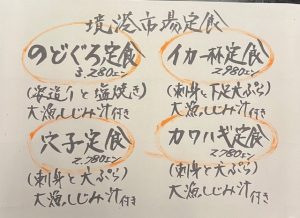 境港市場定食
のどぐろ定食
3,280エン
(姿造りと塩焼き)
大漁しじみ汁付き
イカ一杯定食
2,980エン
(刺身と下足天ぷら)
大漁しじみ汁付き
穴子定食
2,780エン
(刺身と天ぷら)
大漁しじみ汁付き
カワハギ定食
2,780エン
(刺身と天ぷら)
大漁しじみ汁付き